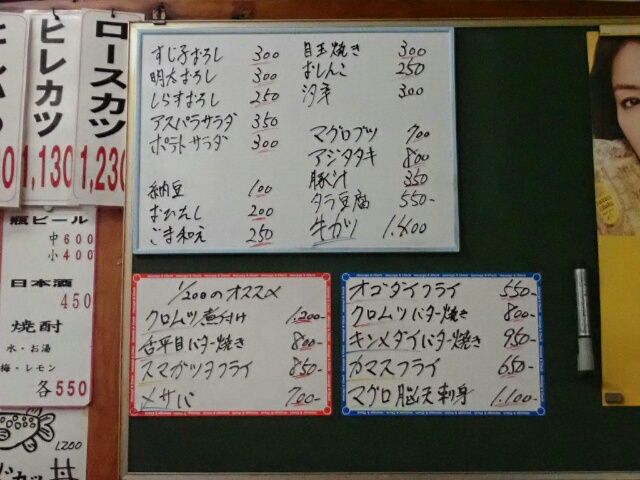 ロースカツ
1,230
ヒレカツ
1,130
瓶ビール
中600
小400
日本酒
450
焼酎
水・お湯
梅・レモン
各550
1,200
丼
すじ子おろし 300
明太おろし 300
しらすおろし 250
アスパラサラダ 350
ポテトサラダ 300
納豆 100
おひたし 200
ごま和え 250
目玉焼き 300
おしんこ 250
300
マグロブツ 700
アジタタキ 800
豚汁 350
タラ豆腐 550-
牛カツ 1.800
1/200のオススメ
クロムツ煮付け 1.200-
舌平目バター焼き 800-
スマガツヲフライ 850-
〆サバ 700-
オゴダイフライ 550-
クロムツバター焼き 800-
キンメダイバター焼き 950-
カマスフライ 650-
マグロ脳天刺身 1.100-